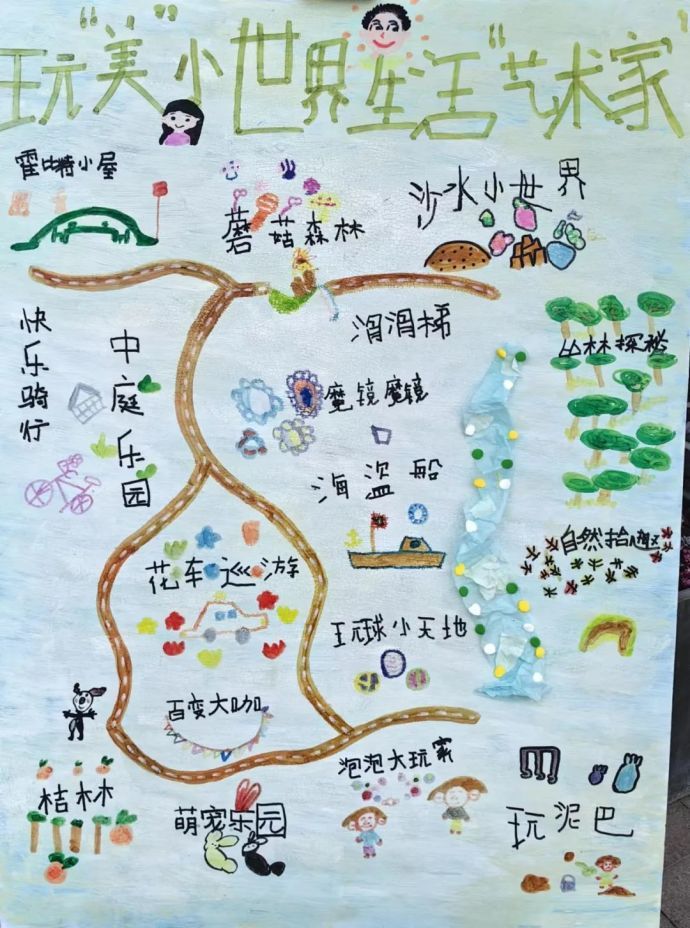 玩“美”小世界生活“艺术家”
霍比特小屋
蘑菇森林
沙水小世界
滑滑梯
山林探秘
快乐骑行
中庭乐园
魔镜魔镜
海盗船
自然拾趣
花车巡游
玩球小天地
百变大咖
泡泡大玩家
桔林
萌宠乐园
玩泥巴